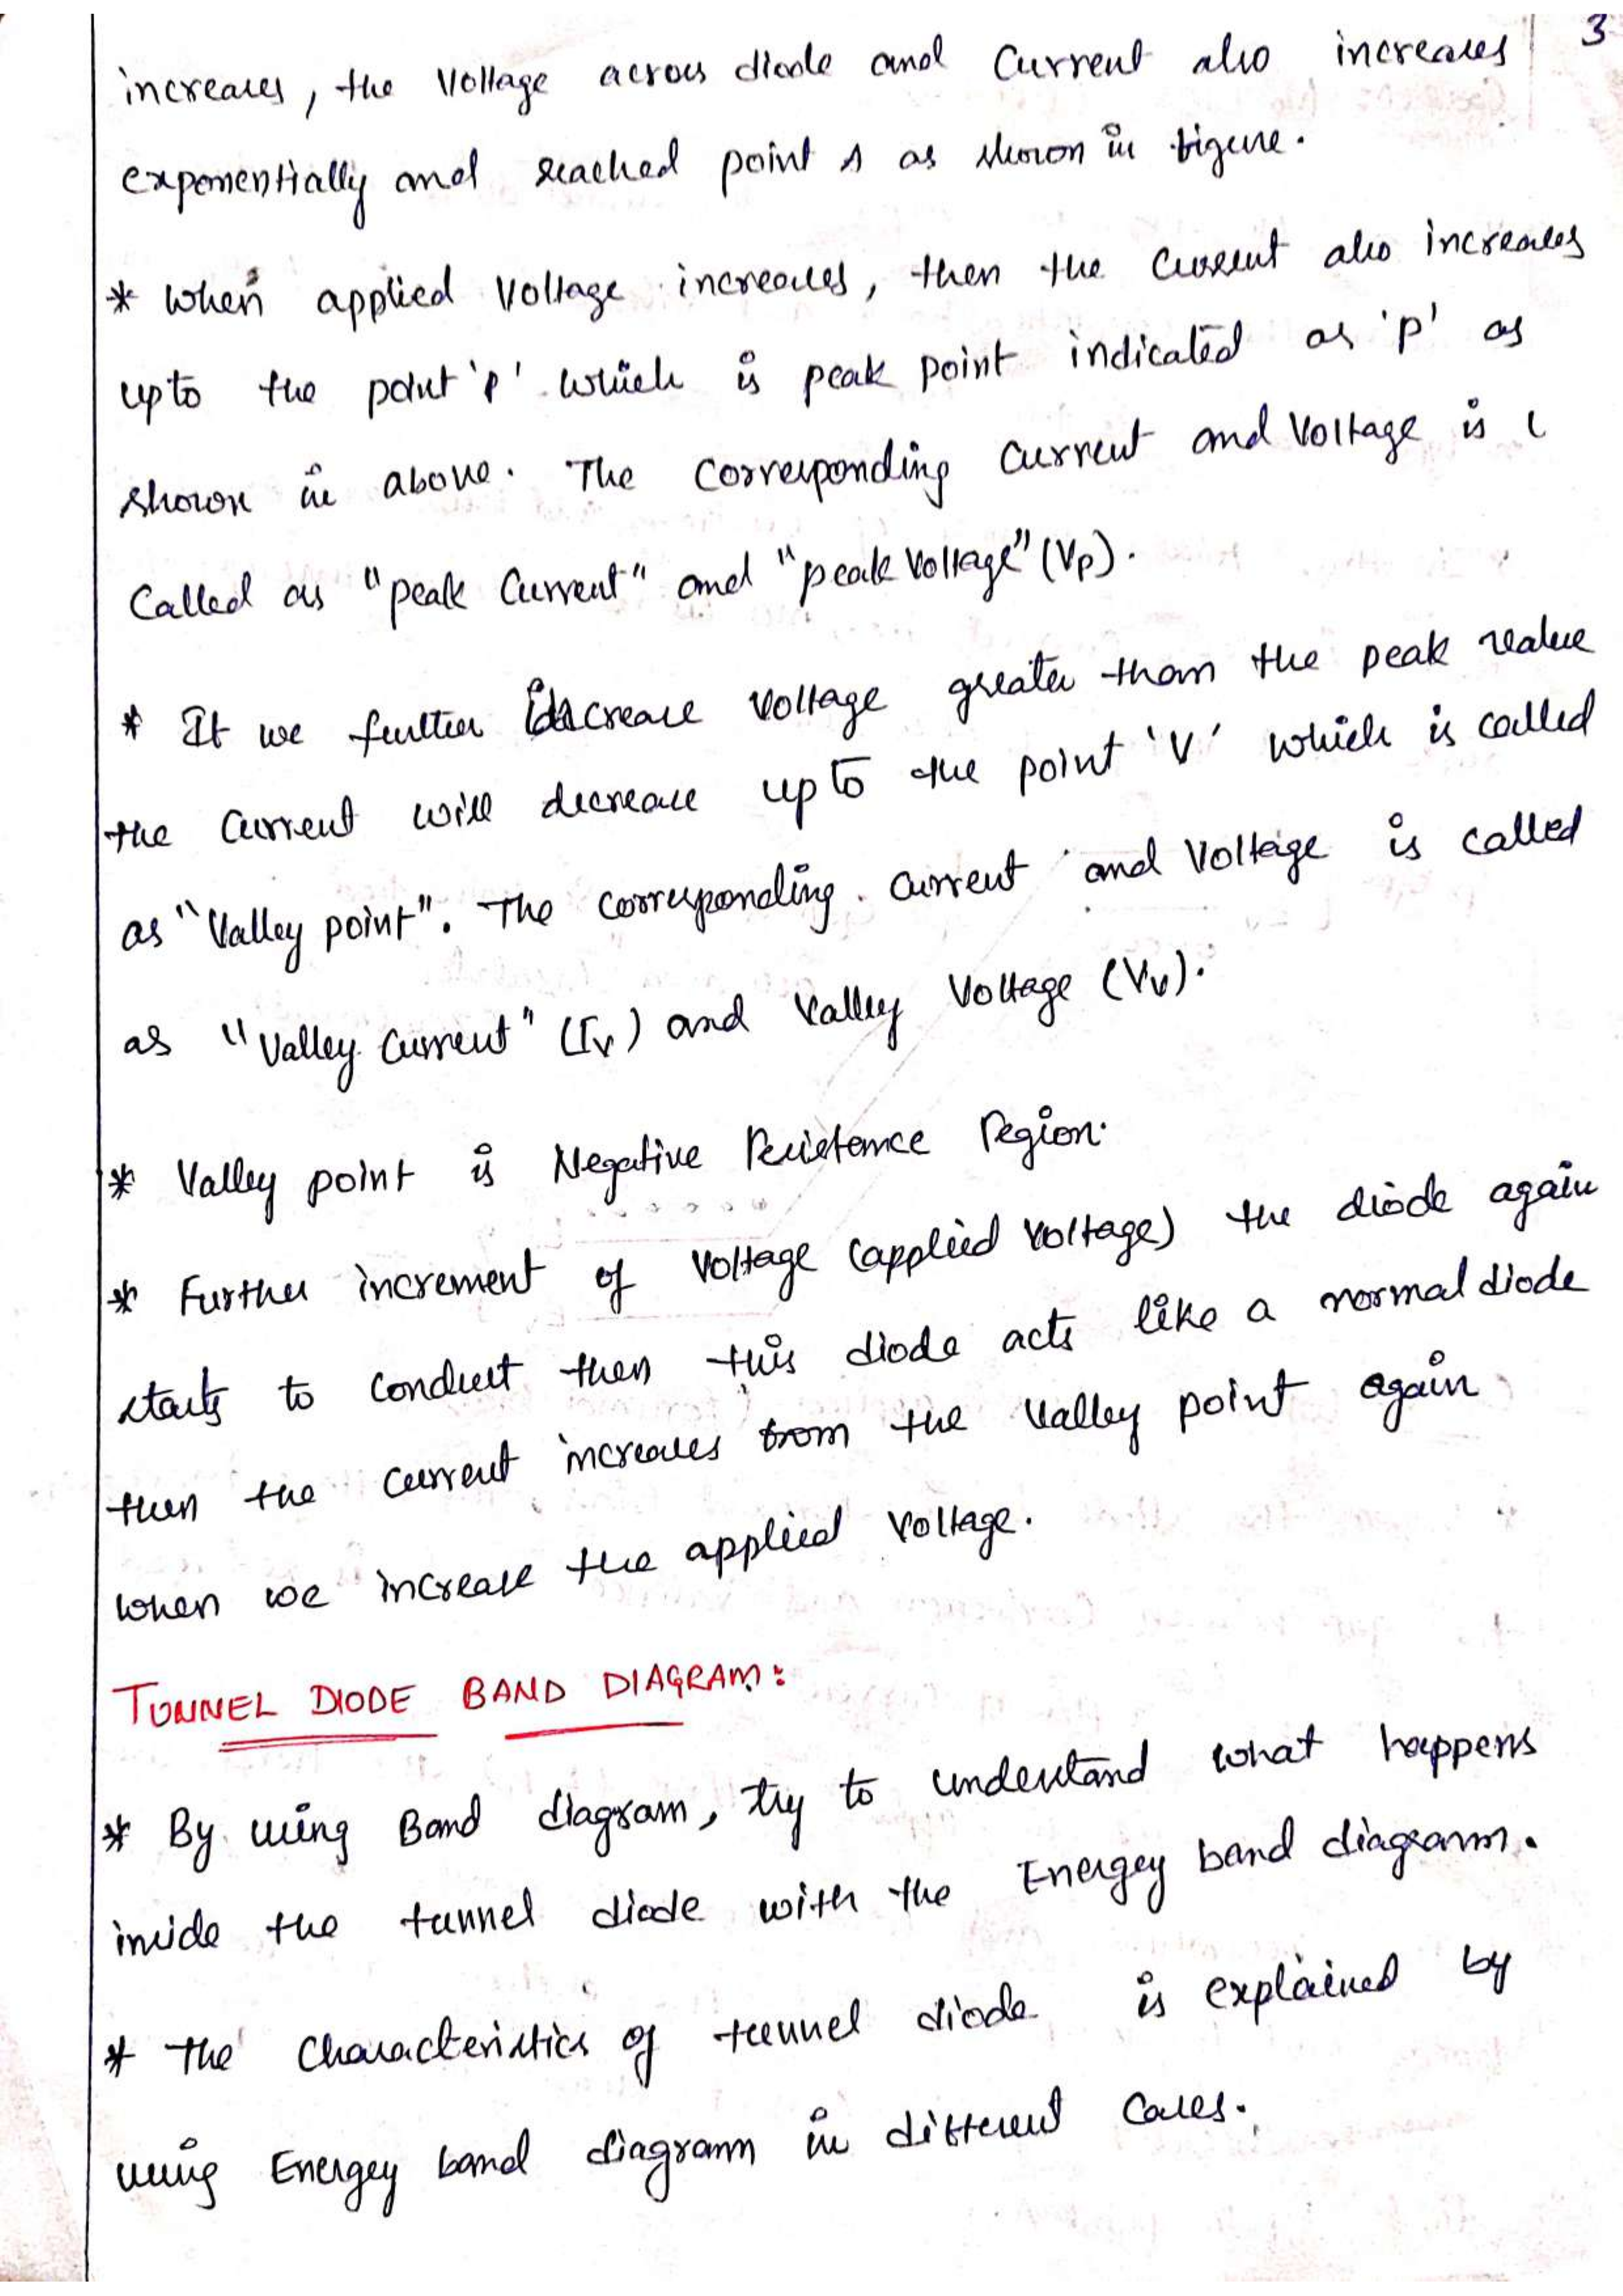 3
increases, the Voltage across diode and Current also increases
exponentially and reached point A as shown in figure.
* When applied Voltage increases, then the Current also increases
upto the point 'P' which is peak point indicated as 'P' as
shown in above. The Corresponding Current and Voltage is
Called as "peak Current" and "peak Voltage" (Vp).
* If we further increase Voltage greater than the peak value
the Current will decrease up to the point 'V' which is called
as "Valley point". The corresponding current and Voltage is called
as "Valley Current" (Iv) and Valley Voltage (Vv).
* Valley point is Negative Resistance Region.
* Further increment of Voltage (applied Voltage) the diode again
starts to conduct then this diode acts like a normal diode
then the current increases from the Valley point again
when we increase the applied Voltage.
TUNNEL DIODE BAND DIAGRAM:
* By using Band diagram, try to understand what happens
inside the tunnel diode with the Energey band diagram.
* The Characteristics of tunnel diode is explained by
using Energey band diagram in different Cases.